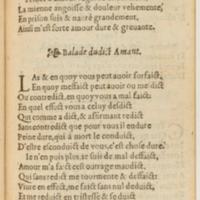 La mienne angoisse & douleur vehemente,
En prison suis & nacré grandement,
Ainsi m'est forte amour dure & grevante.
Balade dudict Amant.
LAS & en quoy vous peut avoir forfaict,
En quoy meffaict peut avoir ou mes dict
Ou contredict, en quoy vous a mal faict
En quel effect vous a celuy desdict
Qui comme a dict, & affirmant redict
Sans contredict que pour vous il endure
Peine dure, qui à mort le conduit,
D'estre esconduit de vous, c'est chose dure.
Ie n'en puis plus, ie suis de mal deffaict,
Amour m'a faict cest ouvrage maudict,
Qui sans redict me tourmente & deffaict
Viure en effect, me faict sans nul deduict,
Et me reduict en tristesse & so duict